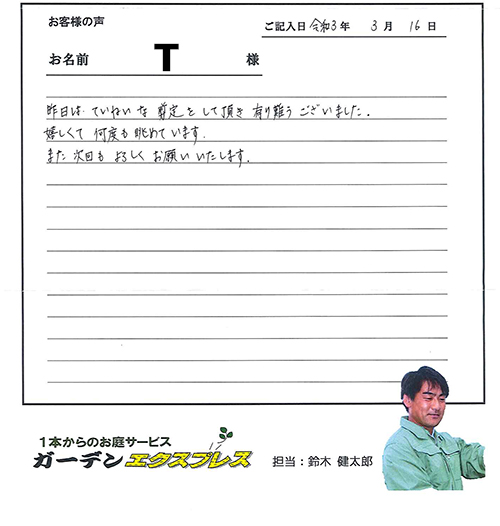 お客様の声
ご記入日 令和3年 3月 16日
お名前 T 様
昨日は ていねいな 剪定をして頂き 有り難う ございました。
嬉しくて 何度も眺めています。
また次回も よろしく お願いいたします。
1本からのお庭サービス
ガーデンエクスプレス
担当：鈴木 健太郎